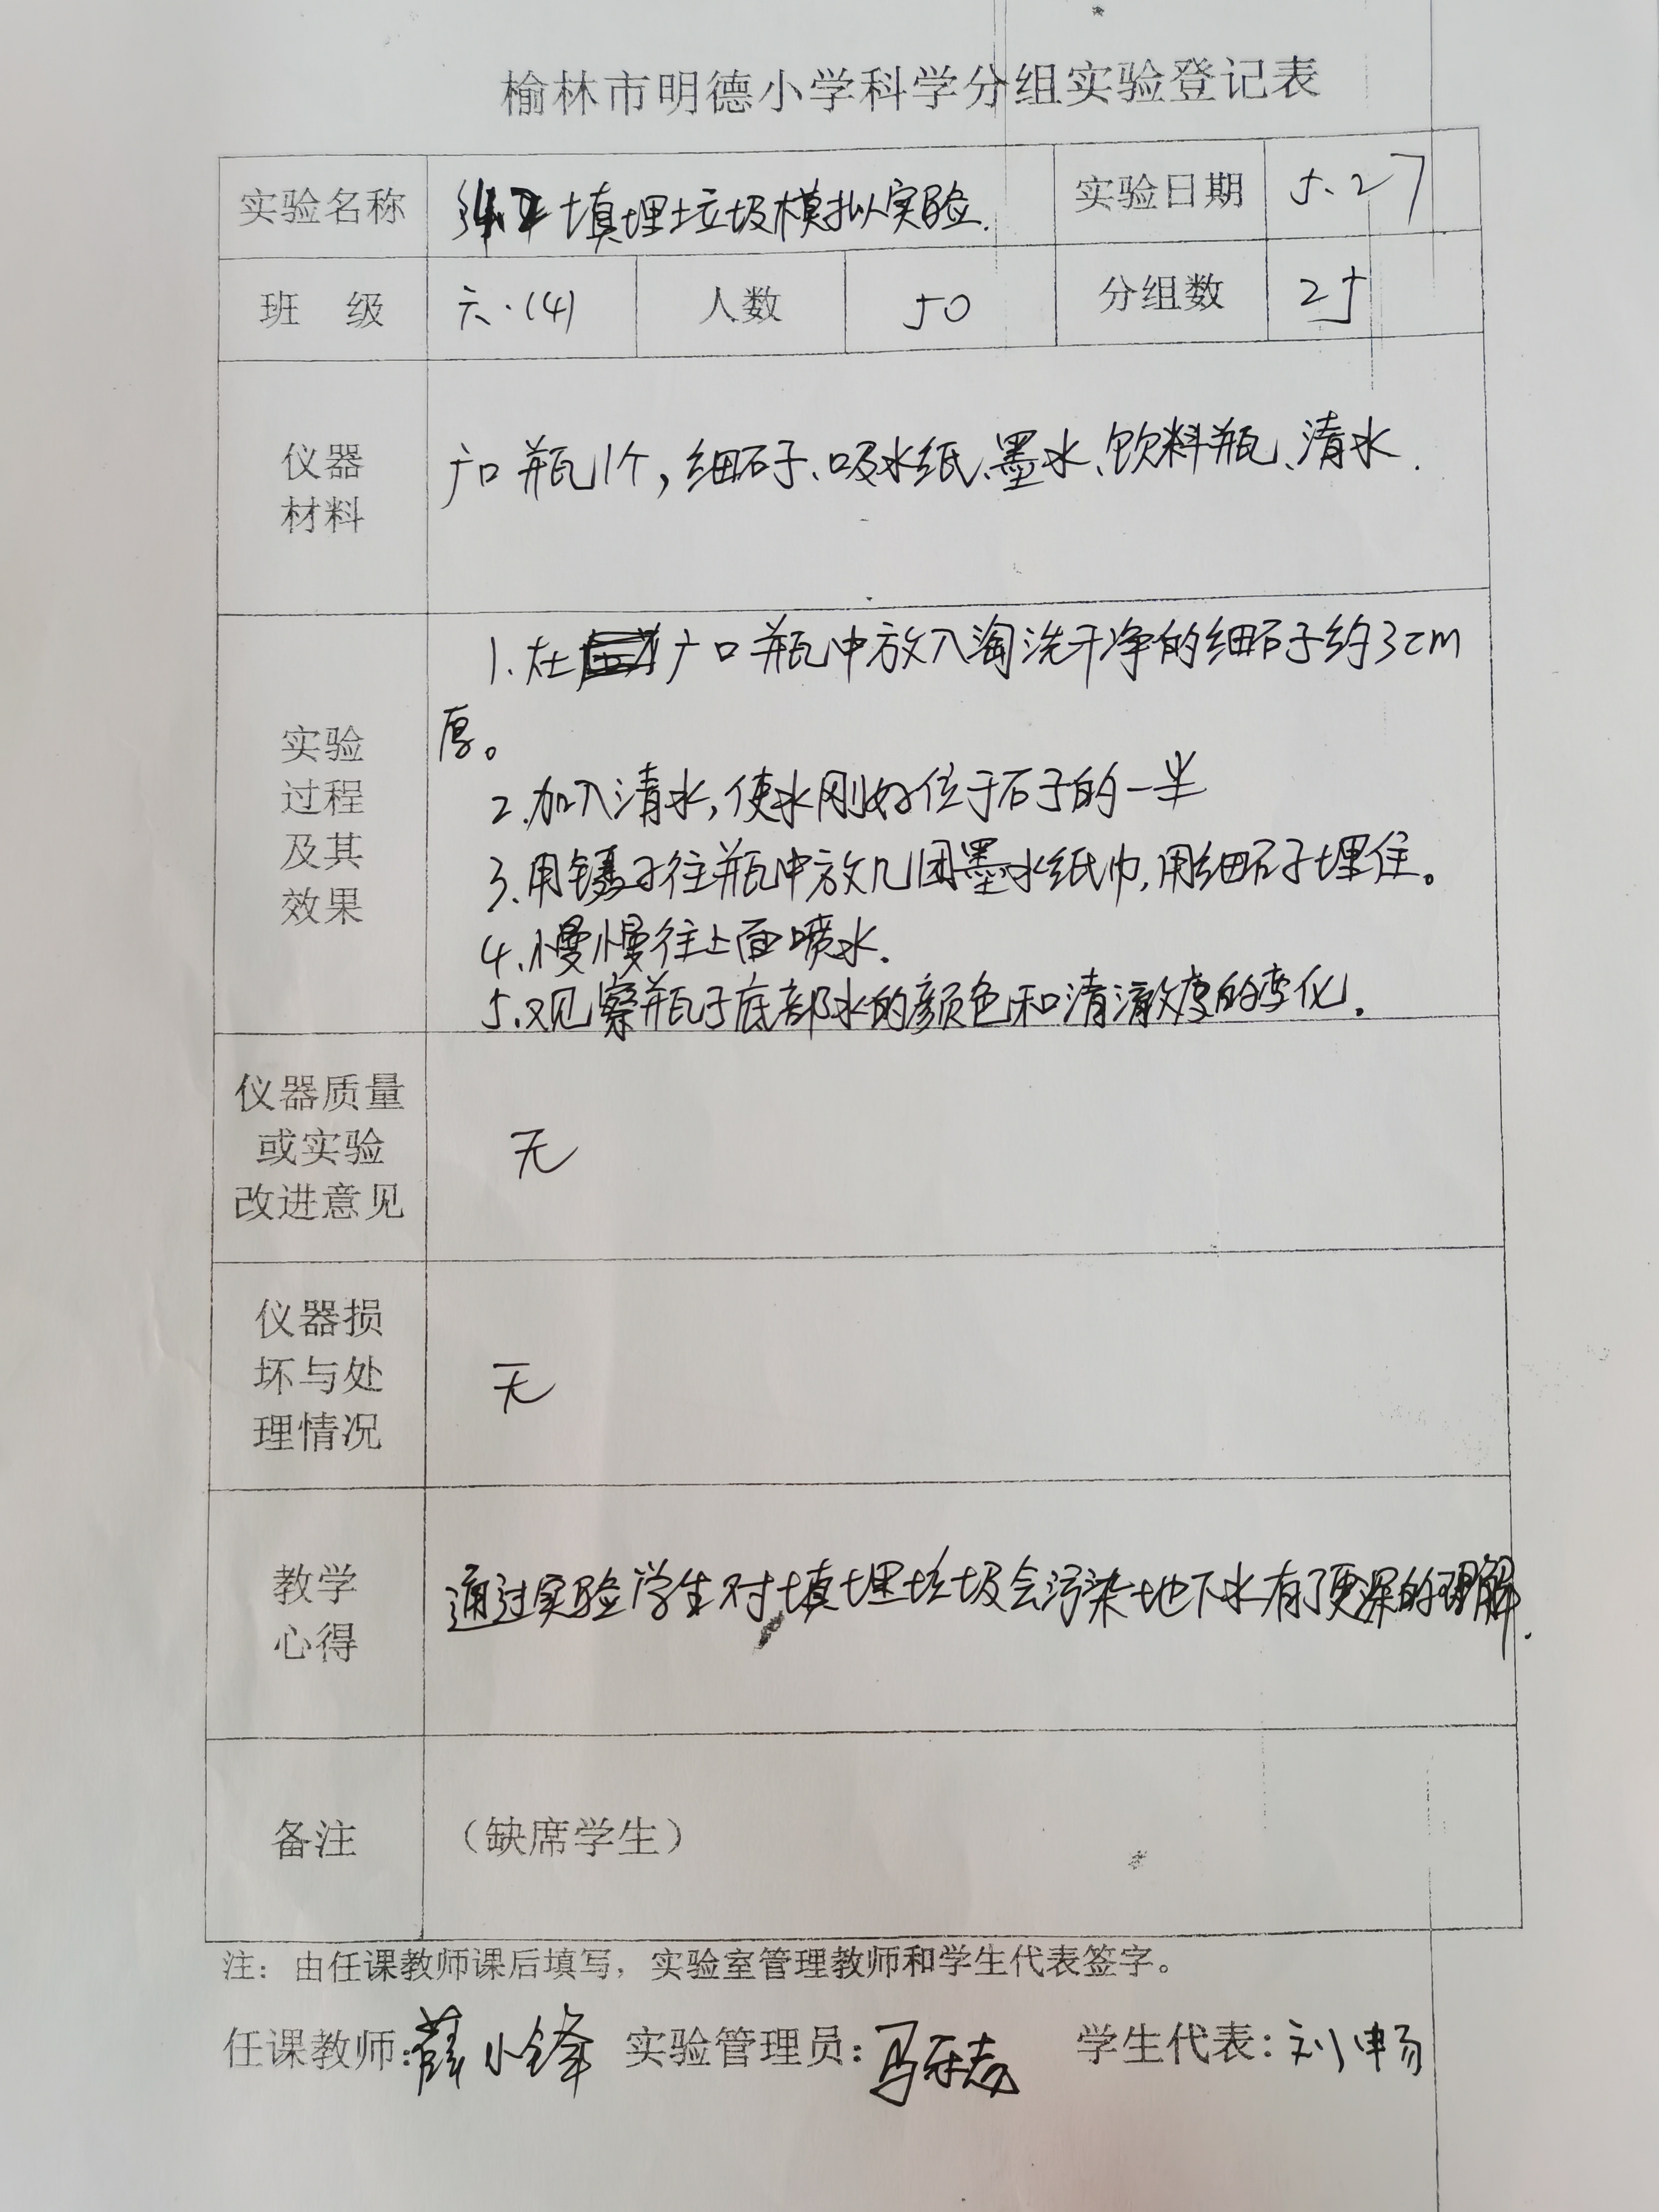 榆林市明德小学科学分组实验登记表
实验名称 填埋垃圾模拟实验. 实验日期 5.27
班 级 六.(4) 人数 50 分组数 25
仪器
材料
广口瓶1个,细石子、吸水纸、墨水、饮料瓶、清水.
实验
过程
及其
效果
1.在广口瓶中放入淘洗干净的细石子约3cm
厚。
2.加入清水,使水刚好位于石子的一半
3.用镊子往瓶中放几团墨水纸巾,用细石子埋住。
4.慢慢往上面喷水.
5.观察瓶子底部水的颜色和清澈度的变化.
仪器质量
或实验
改进意见
无
仪器损
坏与处
理情况
无
教学
心得
通过实验学生对填埋垃圾会污染地下水有了更深的理解.
备注 (缺席学生)
注:由任课教师课后填写,实验室管理教师和学生代表签字。
任课教师:薛小锋 实验管理员:马 学生代表:刘畅